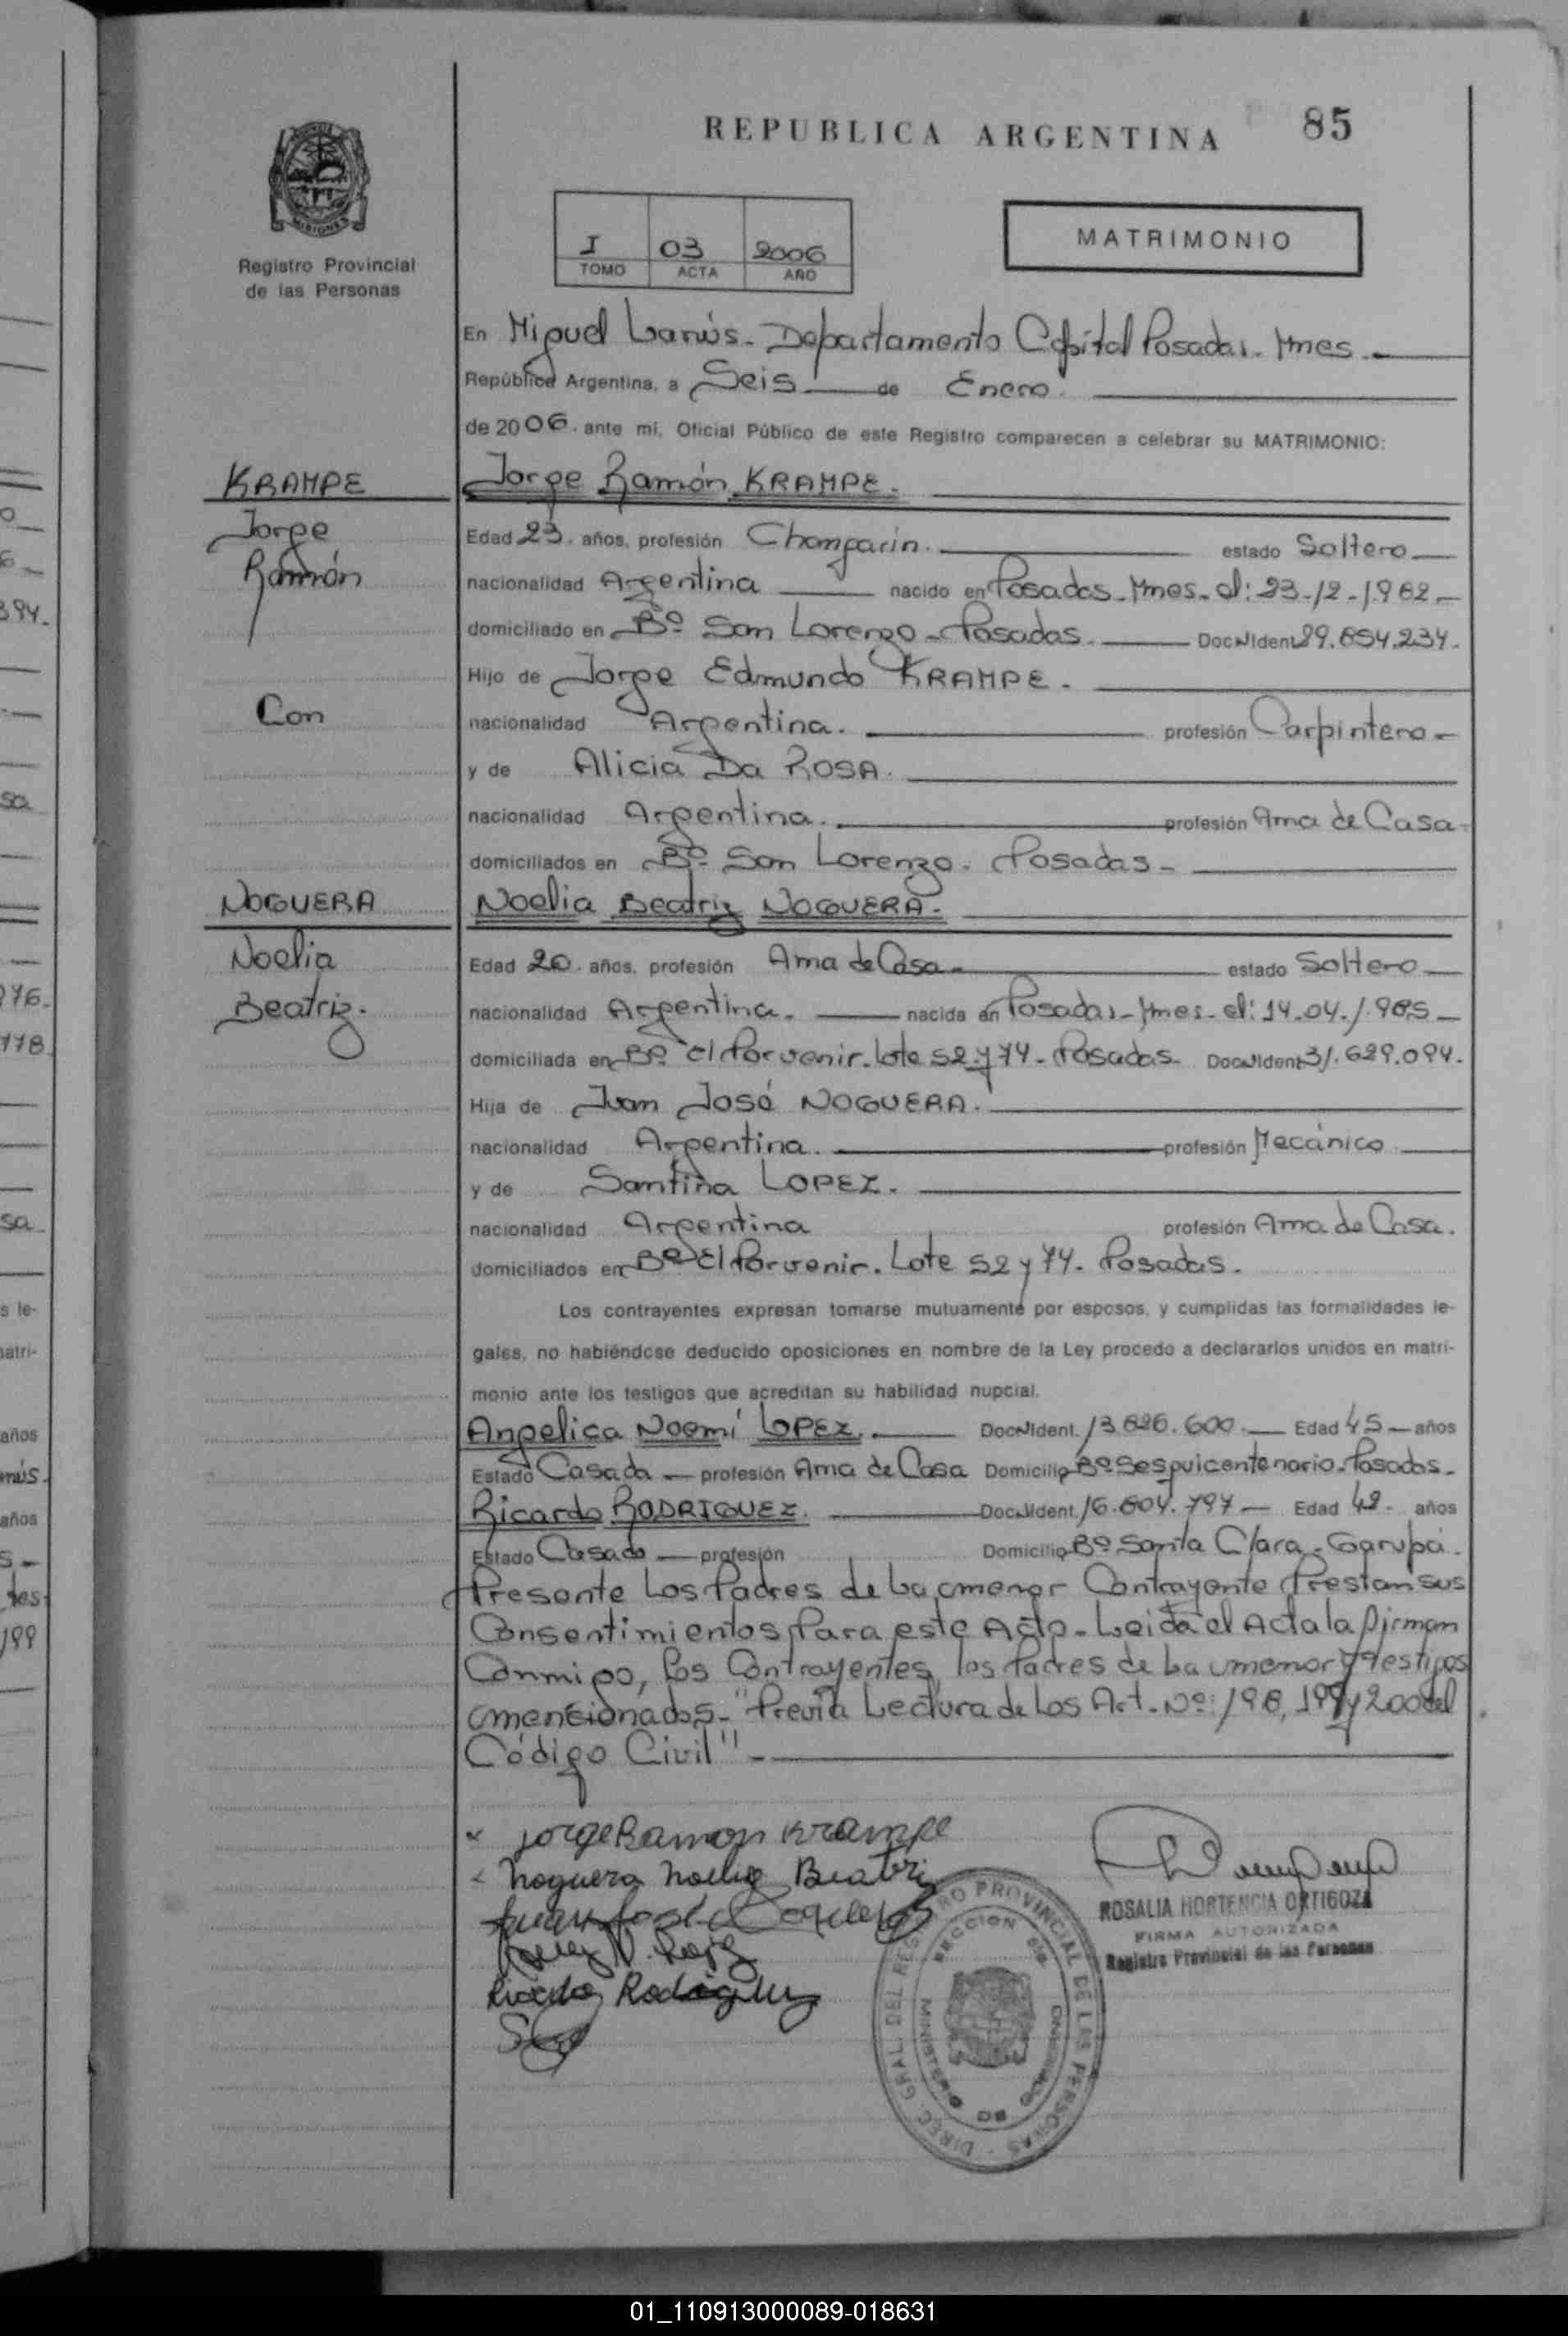 REPUBLICA ARGENTINA 85
MISIONES
Registro Provincial
de las Personas
I 03 2006
TOMO ACTA AÑO
MATRIMONIO
En Miguel Lanús - Departamento Capital Posadas - Mnes. -
República Argentina, a Seis de Enero.
de 2006. ante mí, Oficial Público de este Registro comparecen a celebrar su MATRIMONIO:
KRAMPE
Jorge Ramón KRAMPE.
Jorge
Ramón
Edad 23. años, profesión Changarin. estado Soltero
nacionalidad Argentina nacido en Posadas - Mnes - el: 23-12-1982 -
domiciliado en Bº San Lorenzo - Posadas. Doc N Ident 29.854.234.
Hijo de Jorge Edmundo KRAMPE.
Con
nacionalidad Argentina. profesión Carpintero -
y de Alicia Da ROSA.
nacionalidad Argentina. profesión Ama de Casa -
domiciliados en Bº San Lorenzo. Posadas -
NOGUERA
Noelia Beatriz NOGUERA.
Noelia
Beatriz.
Edad 20. años, profesión Ama de Casa - estado Soltero
nacionalidad Argentina. nacida en Posadas - Mnes - el: 14.04.1985 -
domiciliada en Bº El Porvenir. Lote 52 y 74 - Posadas - Doc N Ident 31.629.094.
Hija de Juan José NOGUERA.
nacionalidad Argentina. profesión Mecánico
y de Santina LOPEZ.
nacionalidad Argentina profesión Ama de Casa.
domiciliados en Bº El Porvenir. Lote 52 y 74. Posadas.
Los contrayentes expresan tomarse mutuamente por esposos, y cumplidas las formalidades le-
gales, no habiéndose deducido oposiciones en nombre de la Ley procedo a declararlos unidos en matri-
monio ante los testigos que acreditan su habilidad nupcial.
Angelica Noemí LOPEZ. Doc N Ident. 13.826.600. Edad 45 - años
Estado Casada - profesión Ama de Casa Domicilio Bº Sesquicentenario. Posadas -
Ricardo RODRIGUEZ. Doc N Ident. 16.804.797 - Edad 42. años
Estado Casado - profesión Domicilio Bº Santa Clara - Garupá.
Presente Los Padres de La menor Contrayente Prestan sus
Consentimientos Para este Acto - Leida el Acta la firman
Conmigo, los Contrayentes, los Padres de La menor y testigos
mencionados - "Previa Lectura de Los Art. Nº: 198, 199 y 200 del
Código Civil" -
x Jorge Ramon Krampe
Noguera Noelia Beatri
Ricardo Rodriguez
ROSALIA HORTENCIA ORTIGOZA
FIRMA AUTORIZADA
Registro Provincial de las Personas
DIREC. GRAL. DEL REGISTRO PROVINCIAL DE LAS PERSONAS
01_110913000089-018631